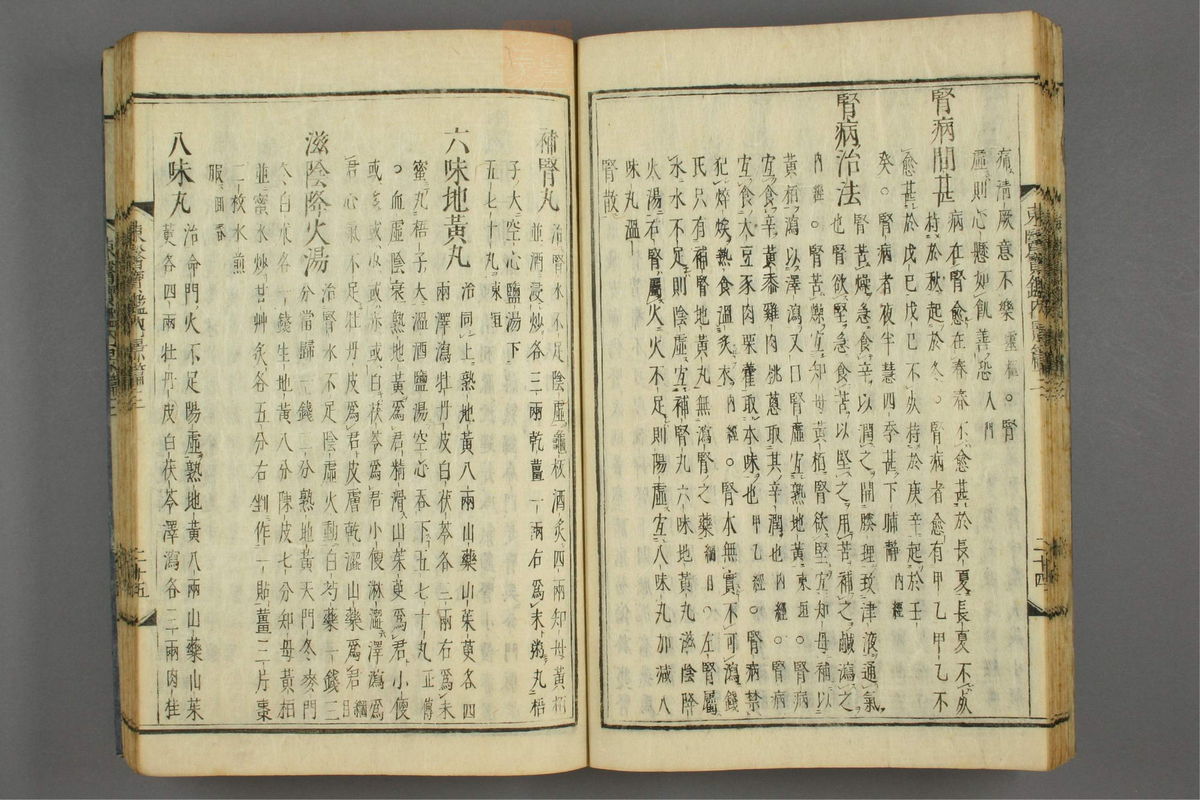 痛淸厥意不樂靈樞○腎
虛則心懸如飢善恐入門
腎病間甚病在腎愈在春春不愈甚於長夏長夏不死
持於秋起於冬○腎病者愈有甲乙甲乙不
愈甚於戊己戊己不死持於庚辛起於壬
癸○腎病者夜半慧四季甚下晡靜內經
腎病治法腎苦燥急食辛以潤之開腠理致津液通氣
也腎欲堅急食苦以堅之用苦補之鹹瀉之
內經○腎苦燥宜知母黃栢腎欲堅宜知母補以
黃栢瀉以澤瀉又曰腎虛宜熟地黃東垣○腎病
宜食辛黃黍雞肉桃葱取其辛潤也內經○腎病
宜食大豆豕肉栗藿取本味也甲乙經○腎病禁
犯焠㶼熱食溫炙衣內經○腎本無實不可瀉錢
氏只有補腎地黃丸無瀉腎之藥綱目○左腎屬
水水不足則陰虛宜補腎丸六味地黃丸滋陰降
火湯右腎屬火火不足則陽虛宜八味丸加減八
味丸溫
腎散
補腎丸治腎水不足陰虛龜板酒炙四兩知母黃栢
並酒浸炒各三兩乾薑一兩右爲末粥丸梧
子大空心鹽湯下
五七十丸東垣
六味地黃丸治同上熟地黃八兩山藥山茱萸各四
兩澤瀉牡丹皮白茯苓各三兩右爲末
蜜丸梧子大溫酒鹽湯空心呑下五七十丸正傳
○血虛陰衰熟地黃爲君精滑山茱萸爲君小便
或多或少或赤或白茯苓爲君小便淋澁澤瀉爲
君心氣不足牡丹皮爲君皮膚乾澁山藥爲君綱目
滋陰降火湯治腎水不足陰虛火動白芍藥一錢三
分當歸一錢二分熟地黃天門冬麥門
冬白朮各一錢生地黃八分陳皮七分知母黃栢
並蜜水炒甘艸炙各五分右剉作一貼薑三片棗
二枚水煎
服回春
八味丸治命門火不足陽虛熟地黃八兩山藥山茱
萸各四兩牡丹皮白茯苓澤瀉各三兩肉桂
二十四
二十五